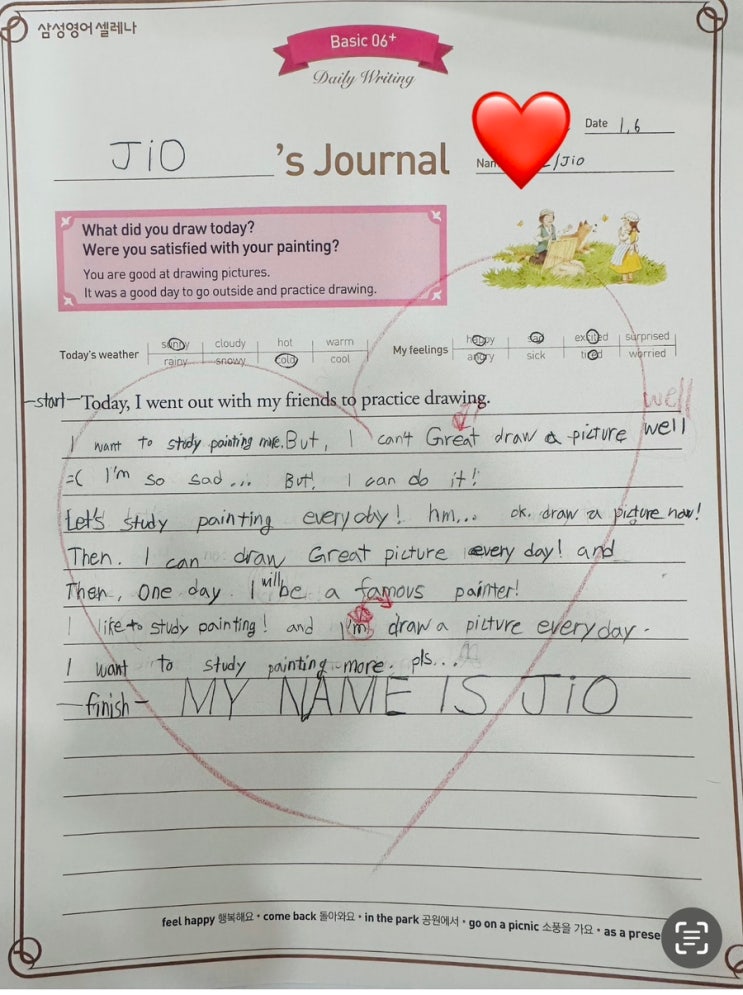 삼성영어 셀레나
Basic 06+
Daily Writing
Date 1.6
JiO 's Journal
/Jio
What did you draw today?
Were you satisfied with your painting?
You are good at drawing pictures.
It was a good day to go outside and practice drawing.
Today's weather sunny cloudy hot warm
rainy snowy cold cool
My feelings happy sad excited surprised
angry sick tired worried
-start- Today, I went out with my friends to practice drawing.
well
I want to study painting more. But, I can't Great draw a picture well
=( I'm so sad... But! I can do it!
Let's study painting everyday! hm... ok. draw a picture now!
Then. I can draw Great picture every day! and
Then, one day. I will be a famous painter!
I like to study painting! and I'm draw a picture everyday.
I want to study painting more. pls...
-finish- MY NAME IS JiO
feel happy 행복해요 • come back 돌아와요 • in the park 공원에서 • go on a picnic 소풍을 가요 • as a prese